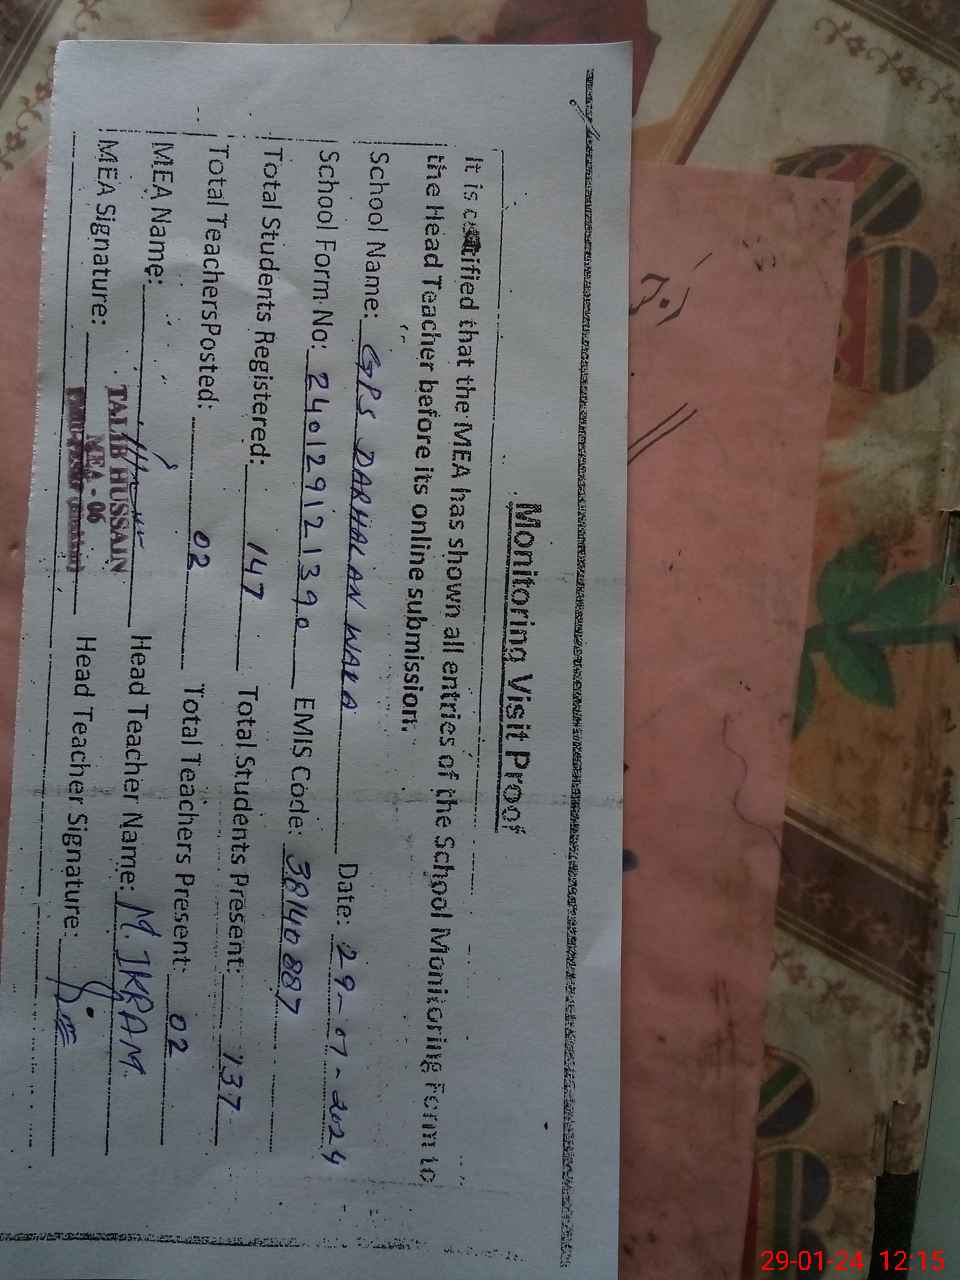 Monitoring Visit Proof
It is certified that the MEA has shown all entries of the School Monitoring Form to
the Head Teacher before its online submission.
School Name: GPS DARHALAN WALA Date: 29-01-2024
School Form No: 24012912139.0 EMIS Code: 38140887
Total Students Registered: 147 Total Students Present: 137
Total Teachers Posted: 02 Total Teachers Present: 02
MEA Name: TALIB HUSSAIN Head Teacher Name: M. IKRAM
MEA - 06
MEA Signature: Head Teacher Signature:
29-01-24 12:15